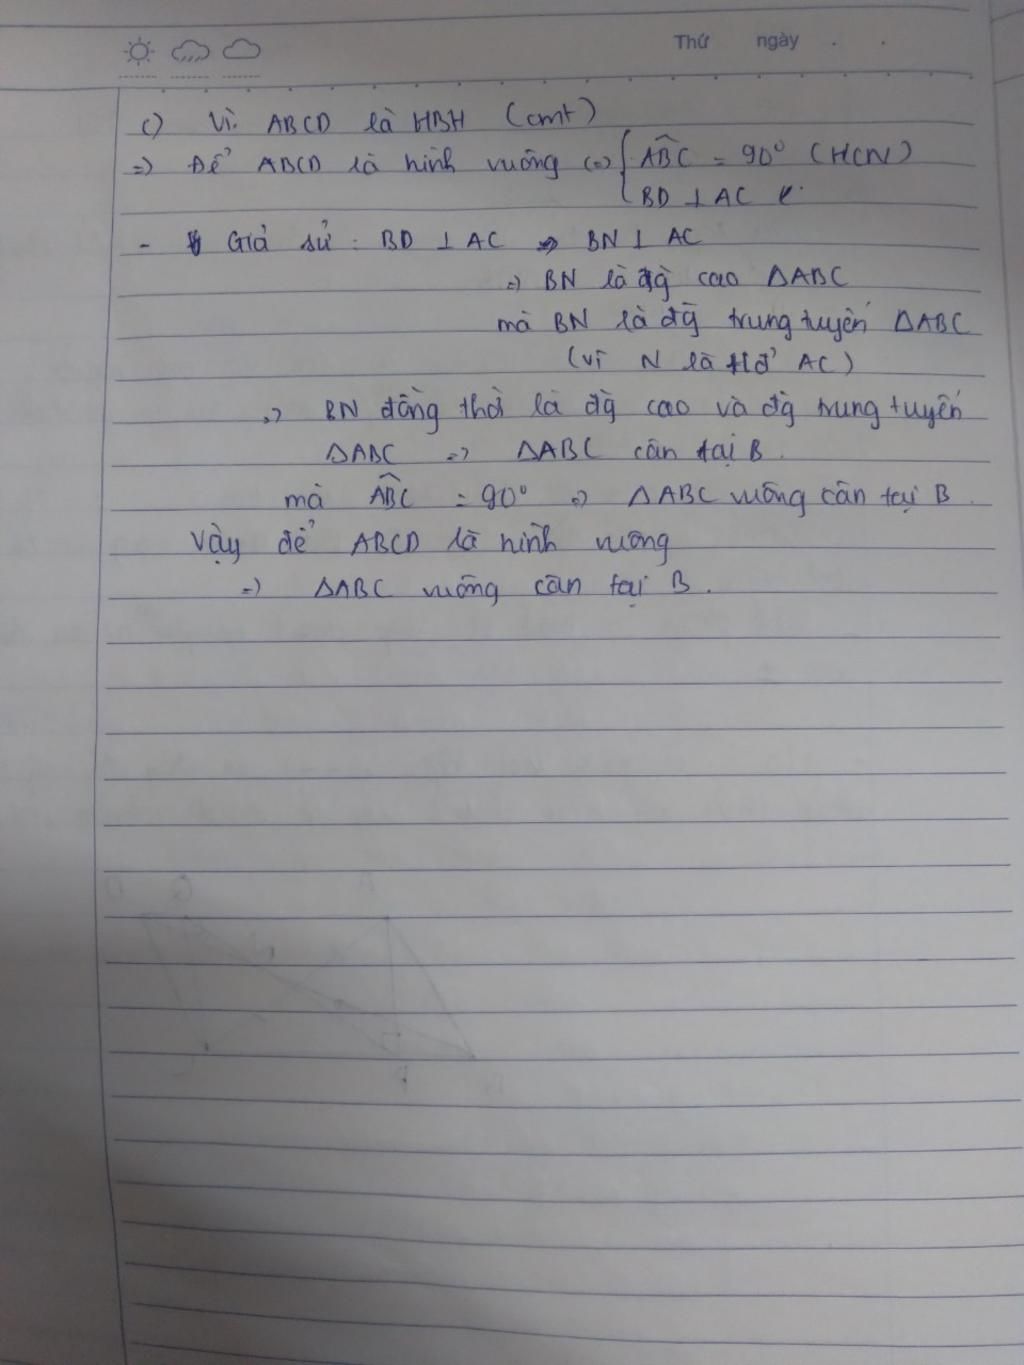 Thứ ngày . .
c) Vì ABCD là HBH (cmt)
=) Để ABCD là hình vuông (=) { ABC = 90° (HCN)
BD ⊥ AC
- Giả sử : BD ⊥ AC => BN ⊥ AC
=) BN là đg cao ΔABC
mà BN là đg trung tuyến ΔABC
(vì N là tđ AC)
=) BN đồng thời là đg cao và đg trung tuyến
ΔABC =) ΔABC cân tại B.
mà ABC = 90° =) ΔABC vuông cân tại B.
Vậy để ABCD là hình vuông
=) ΔABC vuông cân tại B.